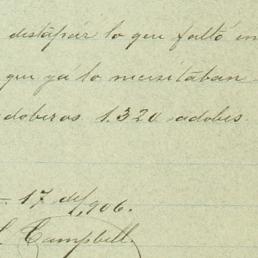 destapár lo que faltó en
que yá lo necesitaban
doberos 1.320 adobes.
17 del
1,906.
Campbell.